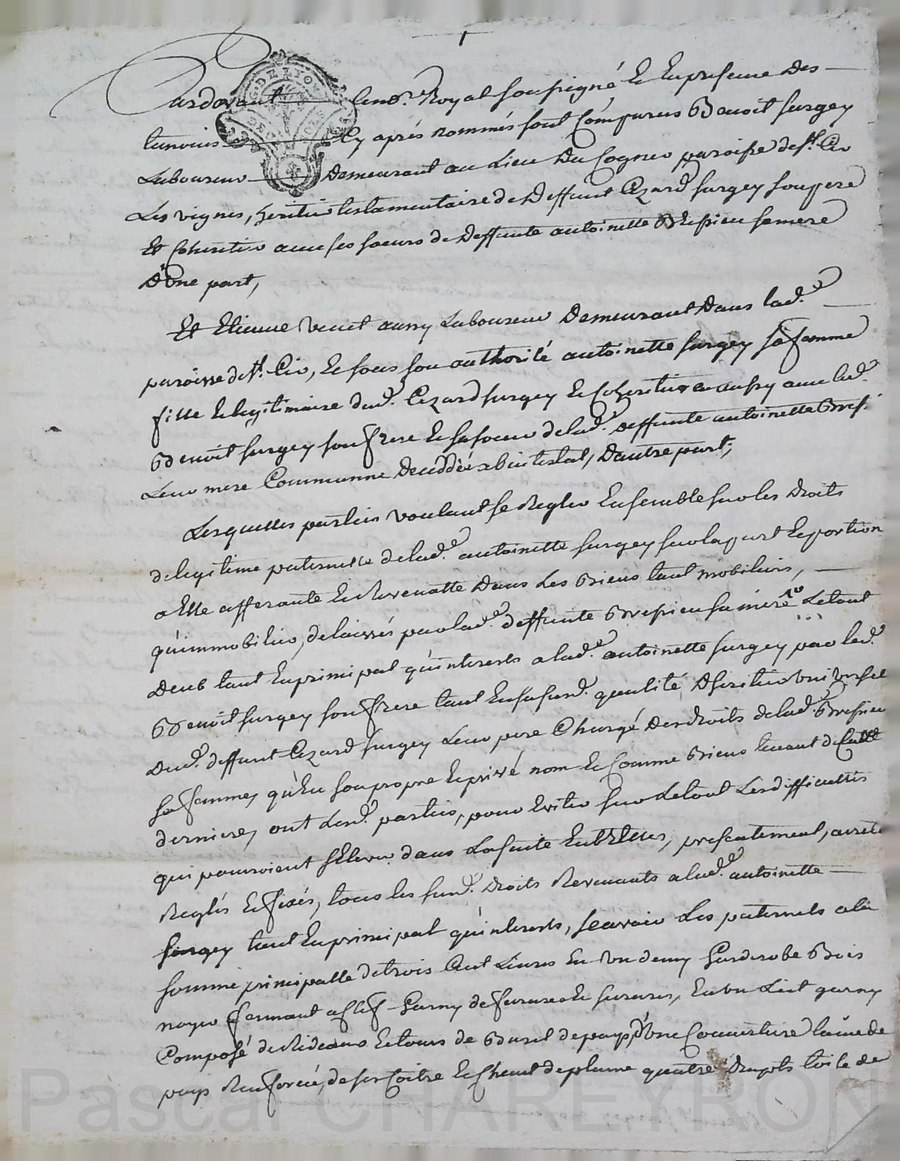 Pardevant le no.re Royal soussigné Et En presence des
temoins cy après nommés sont Comparus Benoit surgey
Laboureur Demeurant au Lieu Du Cogner paroisse de st. Cir
Les vignes, heritier testamentaire de deffunt Cezard surgey son pere
Et Coheritier avec ses soeurs de deffunte antoinette Brepieu sa mere
D'une part,
Et Etienne aussy Laboureur Demeurant Dans lad.e
paroisse de st. Cir, Et sous son authorité antoinette surgey sa femme
fille Et legitimaire dud. Cezard surgey Et Coheritiere aussy avec led.
Benoit surgey son frere Et sa soeur de lad.e deffunte antoinette
Leur mere Commune Decedée abintestat, D'autre part,
Lesquelles parties voulant se Regler Ensemble sur les Droits
de legitime paternelle de lad.e antoinette surgey sur la part Et portion
a Elle afferante Et Revenante Dans Les Biens tant mobiliers,
qu'immobiliers, delaissés par lad.e deffunte Brepieu sa mere Le tout
Deub tant En principal qu'interets a lad.e antoinette surgey par led.
Benoit surgey son frere tant En sa susd. qualité D'heritier universel
Dud. deffunt Cezard surgey Leur pere Chargé Des droits de lad.e Brepieu
sa femme, qu'En son propre Et privé nom Et Comme Biens tenant de Cette
derniere, ont Lesd. parties, pour Eviter sur Le tout Les difficultés
qui pourroient s'Elever dans La suite Entr'Elles, presentement, arrêté
Reglés Et fixés, tous les susd. Droits Revenants a lad.e antoinette
surgey tant En principal qu'interets, sçavoir Les paternels a la
somme principalle de trois Cent Livres En un demy Garderobe Bois
noyer fermant a Clef Garny de ferrures Et serrures, En un Lict garny
Composé de Rideaux Et tours de de pays, une Couverture laine de
pays Renforcée, Et Chevet de plume quatre Draps toile de
Pascal CHAREYRON